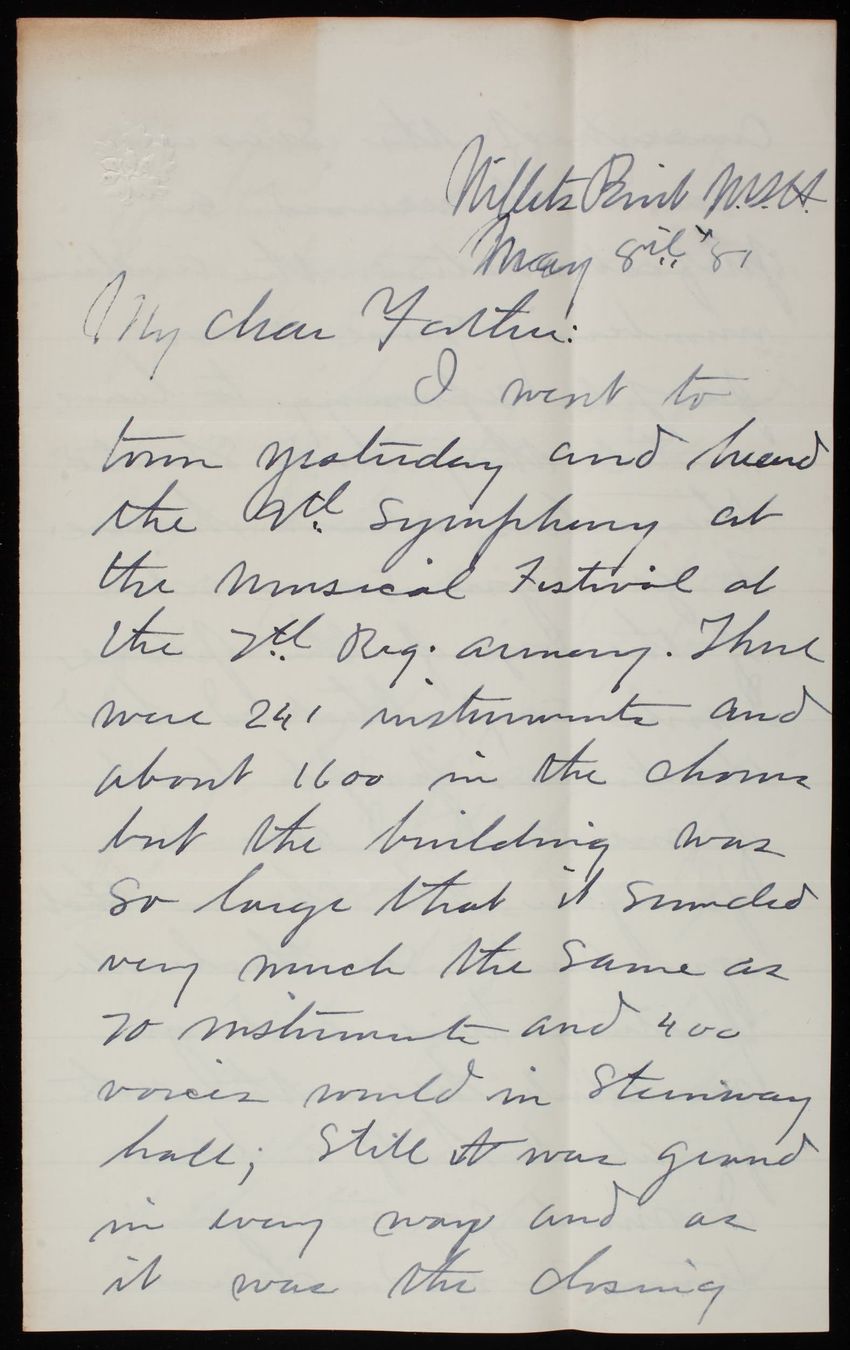 Willets Point N.Y.H.
May 8th '81
My dear Father:
I went to
town yesterday and heard
the 9th Symphony at
the Musical Festival at
the 7th Reg. armory. There
were 241 instruments and
about 1600 in the chorus
but the building was
so large that it sounded
very much the same as
70 instruments and 400
voices would in Steinway
hall; Still it was grand
in every way and as
it was the closing